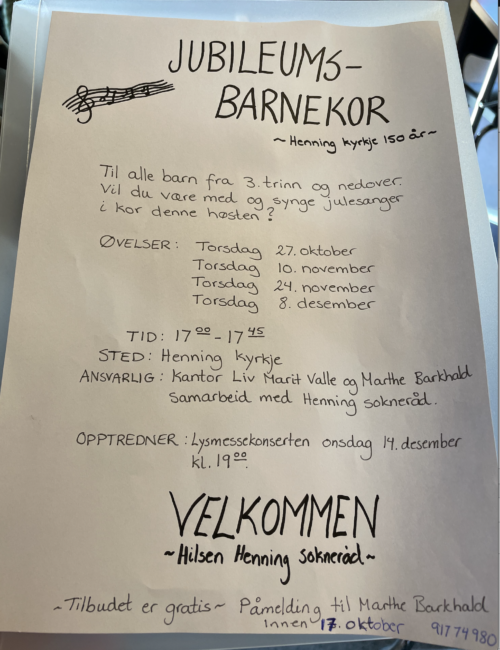 JUBILEUMS-
BARNEKOR
~Henning kyrkje 150 år~
Til alle barn fra 3. trinn og nedover.
Vil du være med og synge julesanger
i kor denne høsten?
ØVELSER: Torsdag 27. oktober
Torsdag 10. november
Torsdag 24. november
Torsdag 8. desember
TID: 17⁰⁰ - 17⁴⁵
STED: Henning kyrkje
ANSVARLIG: Kantor Liv Marit Valle og Marthe Barkhald
Samarbeid med Henning sokneråd.
OPPTREDNER: Lysmessekonserten onsdag 14. desember
kl. 19⁰⁰.
VELKOMMEN
~Hilsen Henning Sokneråd~
~Tilbudet er gratis~ Påmelding til Marthe Barkhald
innen 17. oktober 917 74 980